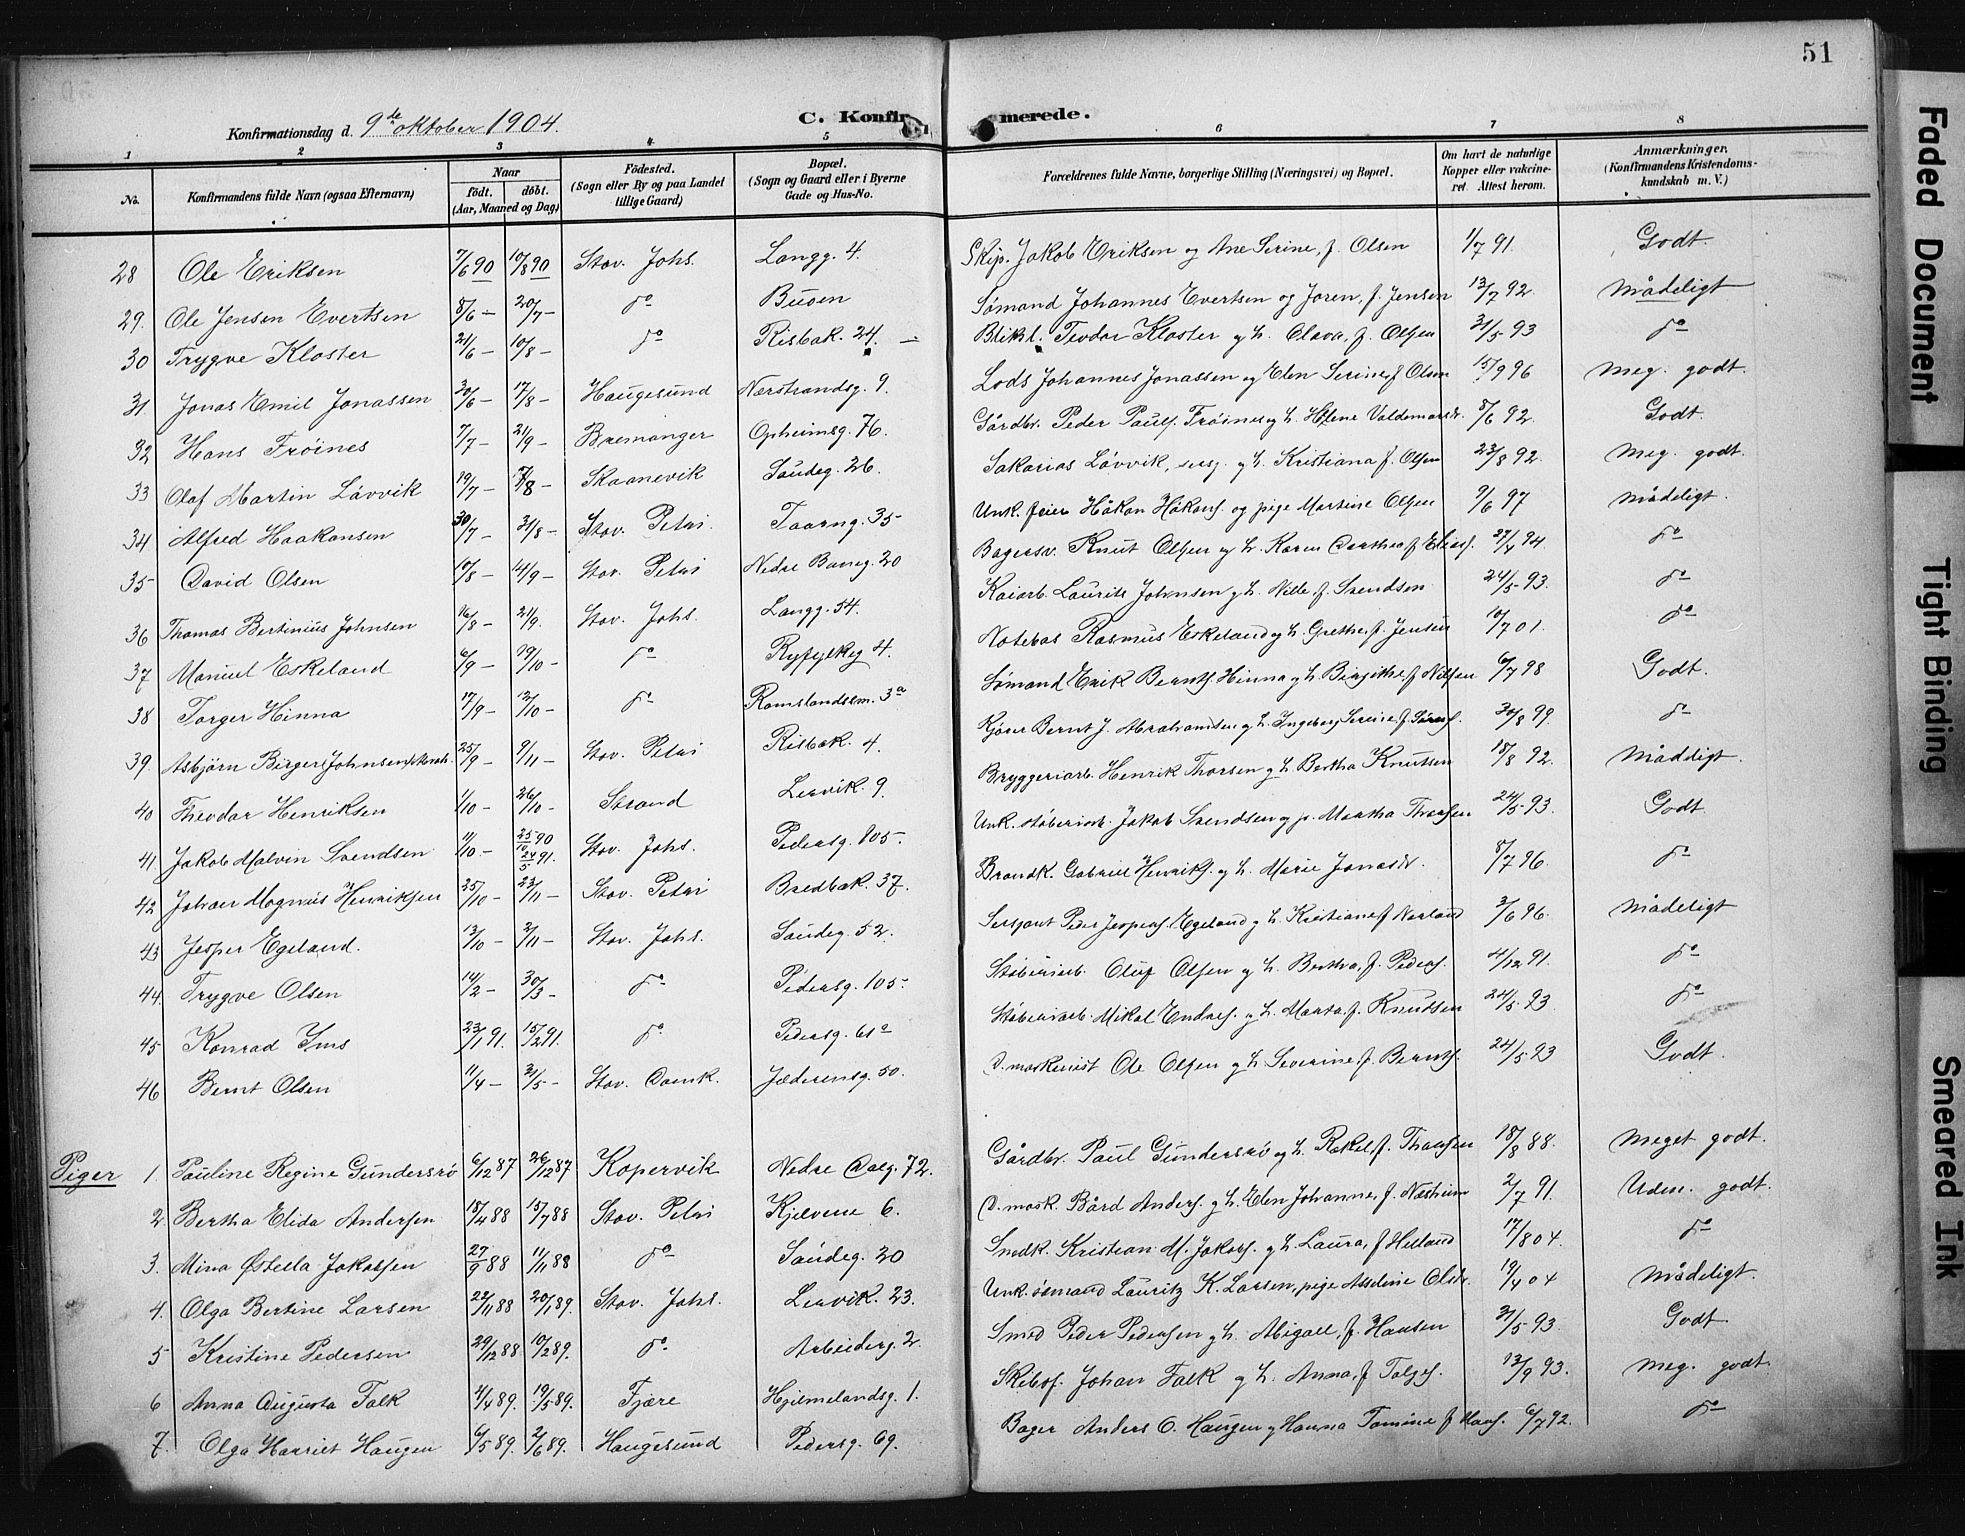 51
Konfirmationsdag d. 9de oktober 1904.
C. Konfirmerede.
1 2 3 4 5 6 7 8
No. Konfirmandens fulde Navn (ogsaa Efternavn) Naar født. døbt. (Aar, Maaned og Dag) Fødested. (Sogn eller By og paa Landet tillige Gaard) Bopæl. (Sogn og Gaard eller i Byerne Gade og Hus-No. Forældrenes fulde Navne, borgerlige Stilling (Næringsvei) og Bopæl. Om havt de naturlige Kopper eller vakcineret. Attest herom. Anmærkninger. (Konfirmandens Kristendomskundskab m. V.)
28 Ole Eriksen 7/6 90 10/8 90 Stav. Johs. Langg. 4. Skip. Jakob Eriksen og Ane Serine, f. Olsen 1/7 91. Godt.
29. Ole Jensen Evertsen 8/6 — 20/7 — do Buøen Sømand Johannes Evertsen og Joren, f. Jensen 13/7 92. Mådeligt
30 Trygve Kloster 21/6 — 10/8 — do Risbak. 24. — Blikksl. Teodor Kloster og h. Olava, f. Olsen 31/5 93 do
31 Jonas Emil Jonassen 30/6 — 17/8 — Haugesund Nerstrandsg. 9. Lods Johannes Jonassen og Elen Serine, f. Olsen 15/9 96 Meg. godt.
32 Hans Frøines 7/7 — 21/9 — Bremanger Opheimsg. 76. Gårdbr. Peder Pauls. Frøines og h. Helene Valdemarsdr. 8/6 92. Godt.
33 Olaf Martin Løvvik 19/7 — 17/8 — Skaanevik Saudeg. 26. Sakarias Løvvik, sersj. og h. Kristiana f. Olsen 23/8 92. Meg. godt.
34 Alfred Haakonsen 30/7 — 31/8 — Stav. Petri. Taarng. 35 Unk. feier Håkon Håkons. og pige Martine Olsen 9/6 97 Mådeligt.
35 David Olsen 10/8 — 14/9 — Stav. Petri Nedre Baneg. 20 Bagersv. Knut Olsen og h. Karen Dorthea f. Elias. 27/4 94. do
36 Thomas Bertinius Johnsen 16/8 — 21/9. Stav. Johs. Langg. 54. Kaiarb. Laurits Johnsen og h. Nille f. Svendsen 24/5 93. do
37 Manuel Eskeland 6/9 — 19/10 — do Ryfylkeg 4. Notebas Rasmus Eskeland og h. Grethe, f. Jensen 10/7 01. do
38 Torger Hinna 17/9 — 12/10 — do Ramslandsem. 3a Sømand Erik Bernts. Hinna og h. Bergithe f. Nilsen 6/7 98 Godt.
39. Asbjørn Birger (Johnsen) Abrah. 25/9 — 9/11 — Stav. Petri Risbak. 4. Kjører Bernt J. Abrahamsen og h. Ingeborg Serine f. Sørens. 30/8 99. do
40 Theodor Henriksen 1/10 — 26/10 — Strand Lervik. 9. Bryggeriarb. Henrik Thorsen og h. Bertha Knutsen 18/8 92. Mådeligt.
41. Jakob Malvin Svendsen 11/10 — 25/10 90 24/5 91. Stav. Johs. Pedersg. 105. Unk. støberiarb. Jakob Svendsen og p. Martha Thorsen 24/5 93. Godt
42 Johan Magnus Henriksen 25/10 — 23/11 — Stav. Petri Bredbak. 37. Brandk. Gabriel Henriks. og h. Marie Jonasdr. 8/7 96. do
43 Jesper Egeland. 13/10 — 2/11 — Stav. Johs. Saudeg. 52. Sersjant Peder Jespers. Egeland og h. Kristiane f. Nærland 3/6 96. Mådeligt
44. Trygve Olsen 14/2 — 30/3 — do Pedersg. 105. Støberiarb. Oluf Olsen og h. Bertha, f. Peders. 4/12 91. do
45 Konrad Ims 23/1 91. 15/2 91. do Pedersg. 61a Støberiarb. Mikal Endres. og h. Marta, f. Knutsen 24/5 93. do
46 Bernt Olsen 11/4 — 31/5 — Stav. Domk. Jæderensg. 50. D. maskinist Ole Olsen og h. Severine, f. Bernts. 24/5 93 Godt.
Piger 1. Pauline Regine Gundersrø 6/12 87 26/12 87 Kopervik Nedre Dalg. 72. Gårdbr. Paul Gundersrø og h. Rakel, f. Thorsen 18/8 88. Meget godt.
2. Bertha Elida Andersen 18/4 88 15/7 88 Stav. Petri Kjelvene 6. D. mask. Bård Anders. og h. Elen Johanne, f. Næsheim 2/7 91. Udm. godt.
3. Mina Østella Jakobsen 27/9 88 11/11 88 do Saudeg. 20 Snedk. Kristian M. Jakobs. og h. Laura, f. Helland 17/8 04. do
4. Olga Bertine Larsen 22/11 88 20/1 89. Stav. Johs. Lervik. 23. Unk. sømand Lauritz K. Larsen, pige Asseline Olsdr. 19/4 04 Mådeligt.
5 Kristine Pedersen 29/12 88 10/2 89. do Arbeiderg. 2. Smed Peder Pedersen og h. Abigael, f. Hansen 31/5 93. Godt
6 Anna Augusta Falk 4/4 89. 19/5 89. Fjære Hjelmelandsg. 1. Skibsf. Johan Falk og h. Anna, f. Tolgs. 13/9 93. Meg. godt.
7. Olga Harriet Haugen 6/5 89. 2/6 89. Haugesund Pedersg. 69. Bager Anders O. Haugen og Hanna Tomine f. Hans. 6/7 92. do
Faded Document
Tight Binding
Smeared Ink